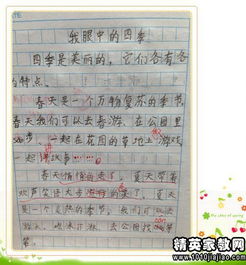 我眼中的四季
四季是美丽的，它们各有各
的特点。
春天是一个万物复苏的季节，
春天我们可以去春游，在公园里
步，一起在花园的草地上游戏，
一起讲故事……
春天悄悄的走了，夏天带着
欢声笑语大步的来了，夏天
是一个炎热的季节，我们可以去
去公园找
精英家教网
www.1010jiajiao.com